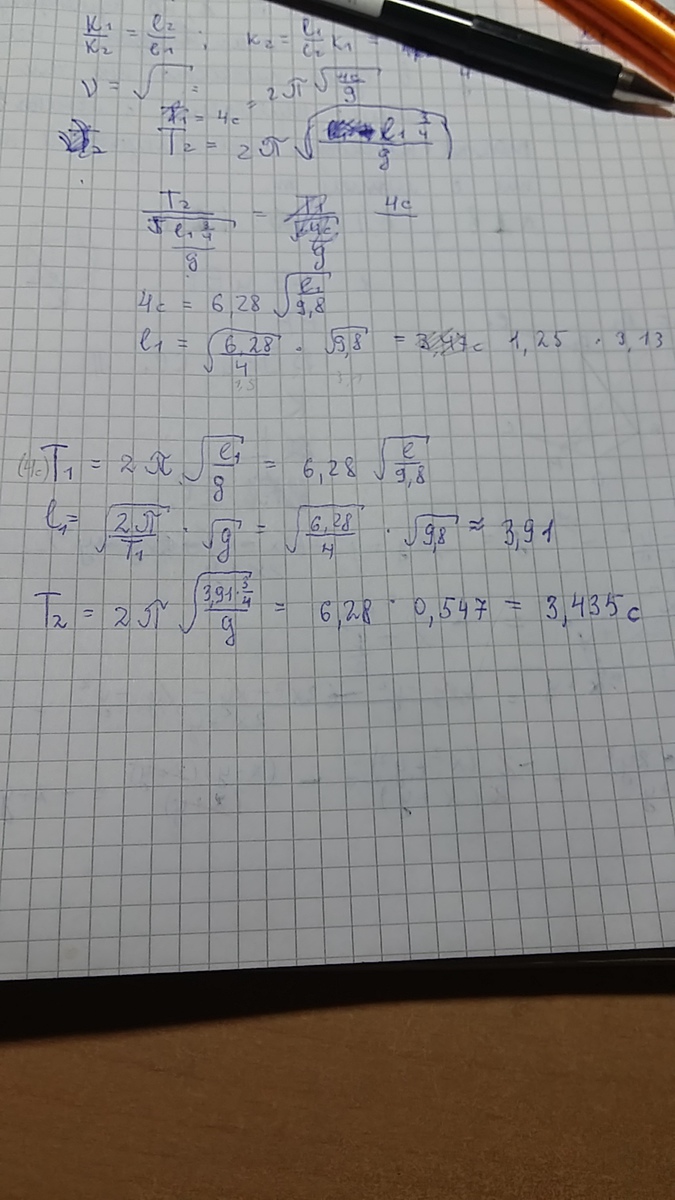 K₁/K₂ = l₂/l₁ ; K₂ = l₁/l₂ K₁ =
ν = √ = 2π√(4c/g)
T₁ = 4c
T₂ = 2π√(l₁ 3/4 / g)
T₂/√(l₁ 3/4 / g) = 4c
4c = 6,28 √(l₁/9,8)
l₁ = √(6,28/4) · √9,8 = 1,25 · 3,13
(4c) T₁ = 2π √(l₁/g) = 6,28 √(l/9,8)
l₁ = √(2π/T₁) · √g = √(6,28/4) · √9,8 ≈ 3,91
T₂ = 2π √(3,91·3/4 / g) = 6,28 · 0,547 = 3,435 c